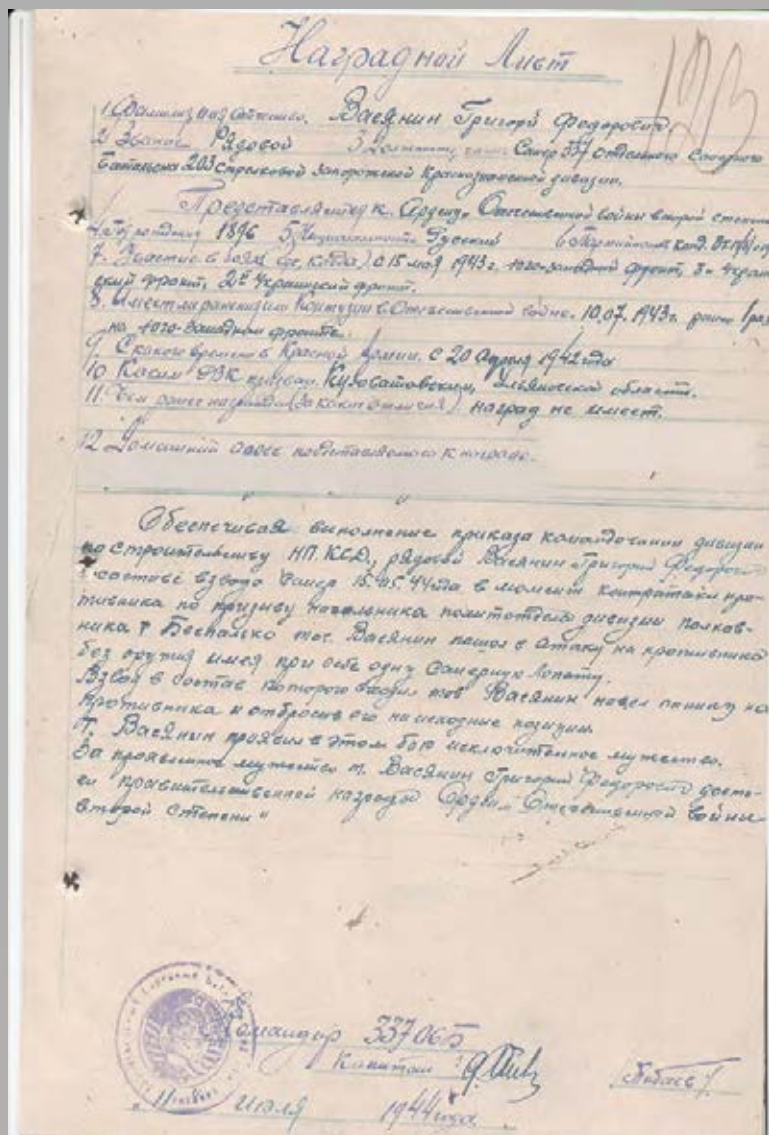 Наградной Лист
123
1. Фамилия имя отчество. Васянин Григорий Федорович
2 Звание Рядовой 3 Сапер 337 отдельного Саперного
батальона 203 стрелковой Запорожской Краснознаменной дивизии.
Представляется к Ордену Отечественной войны второй степени
4. Год рождения 1896 5 Национальность Русский 6 Партийность канд.
7. Участие в боях (где, когда) с 15 мая 1943 г. юго-западный фронт, 3й Украин
ский фронт, 2й Украинский фронт.
8. Имеет ли ранения или Контузии в Отечественной войне. 10.07.1943г. ранен 1 раз
на юго-западном фронте.
9. С какого времени в Красной Армии. С 20 Апреля 1942 года
10 Каким РВК призван. Кузоватовским, Ульяновской области.
11. Чем ранее награжден (за какие отличия) наград не имеет.
12 Домашний адрес представляемого к награде.
Обеспечивая выполнение приказа командования дивизии
по строительству НП. КСД, рядовой Васянин Григорий Федорович
в составе взвода Сапер 15.05.44 года в момент контратаки про-
тивника по призыву начальника политотдела дивизии полков-
ника т Беспалько тов. Васянин пошол в атаку на противника
без оружия имея при себе одну Саперную Лопату.
Взвод в составе которого входил тов Васянин навел панику на
противника и отбросив его на исходные позиции.
Т. Васянин проявил в этом бою исключительное мужество.
За проявленное мужество т. Васянин Григорий Федорович досто-
ен правительственной награды Орден „Отечественной войны
второй степени"
Командир 337 ОСБ
Капитан
„11" июля 1944 года